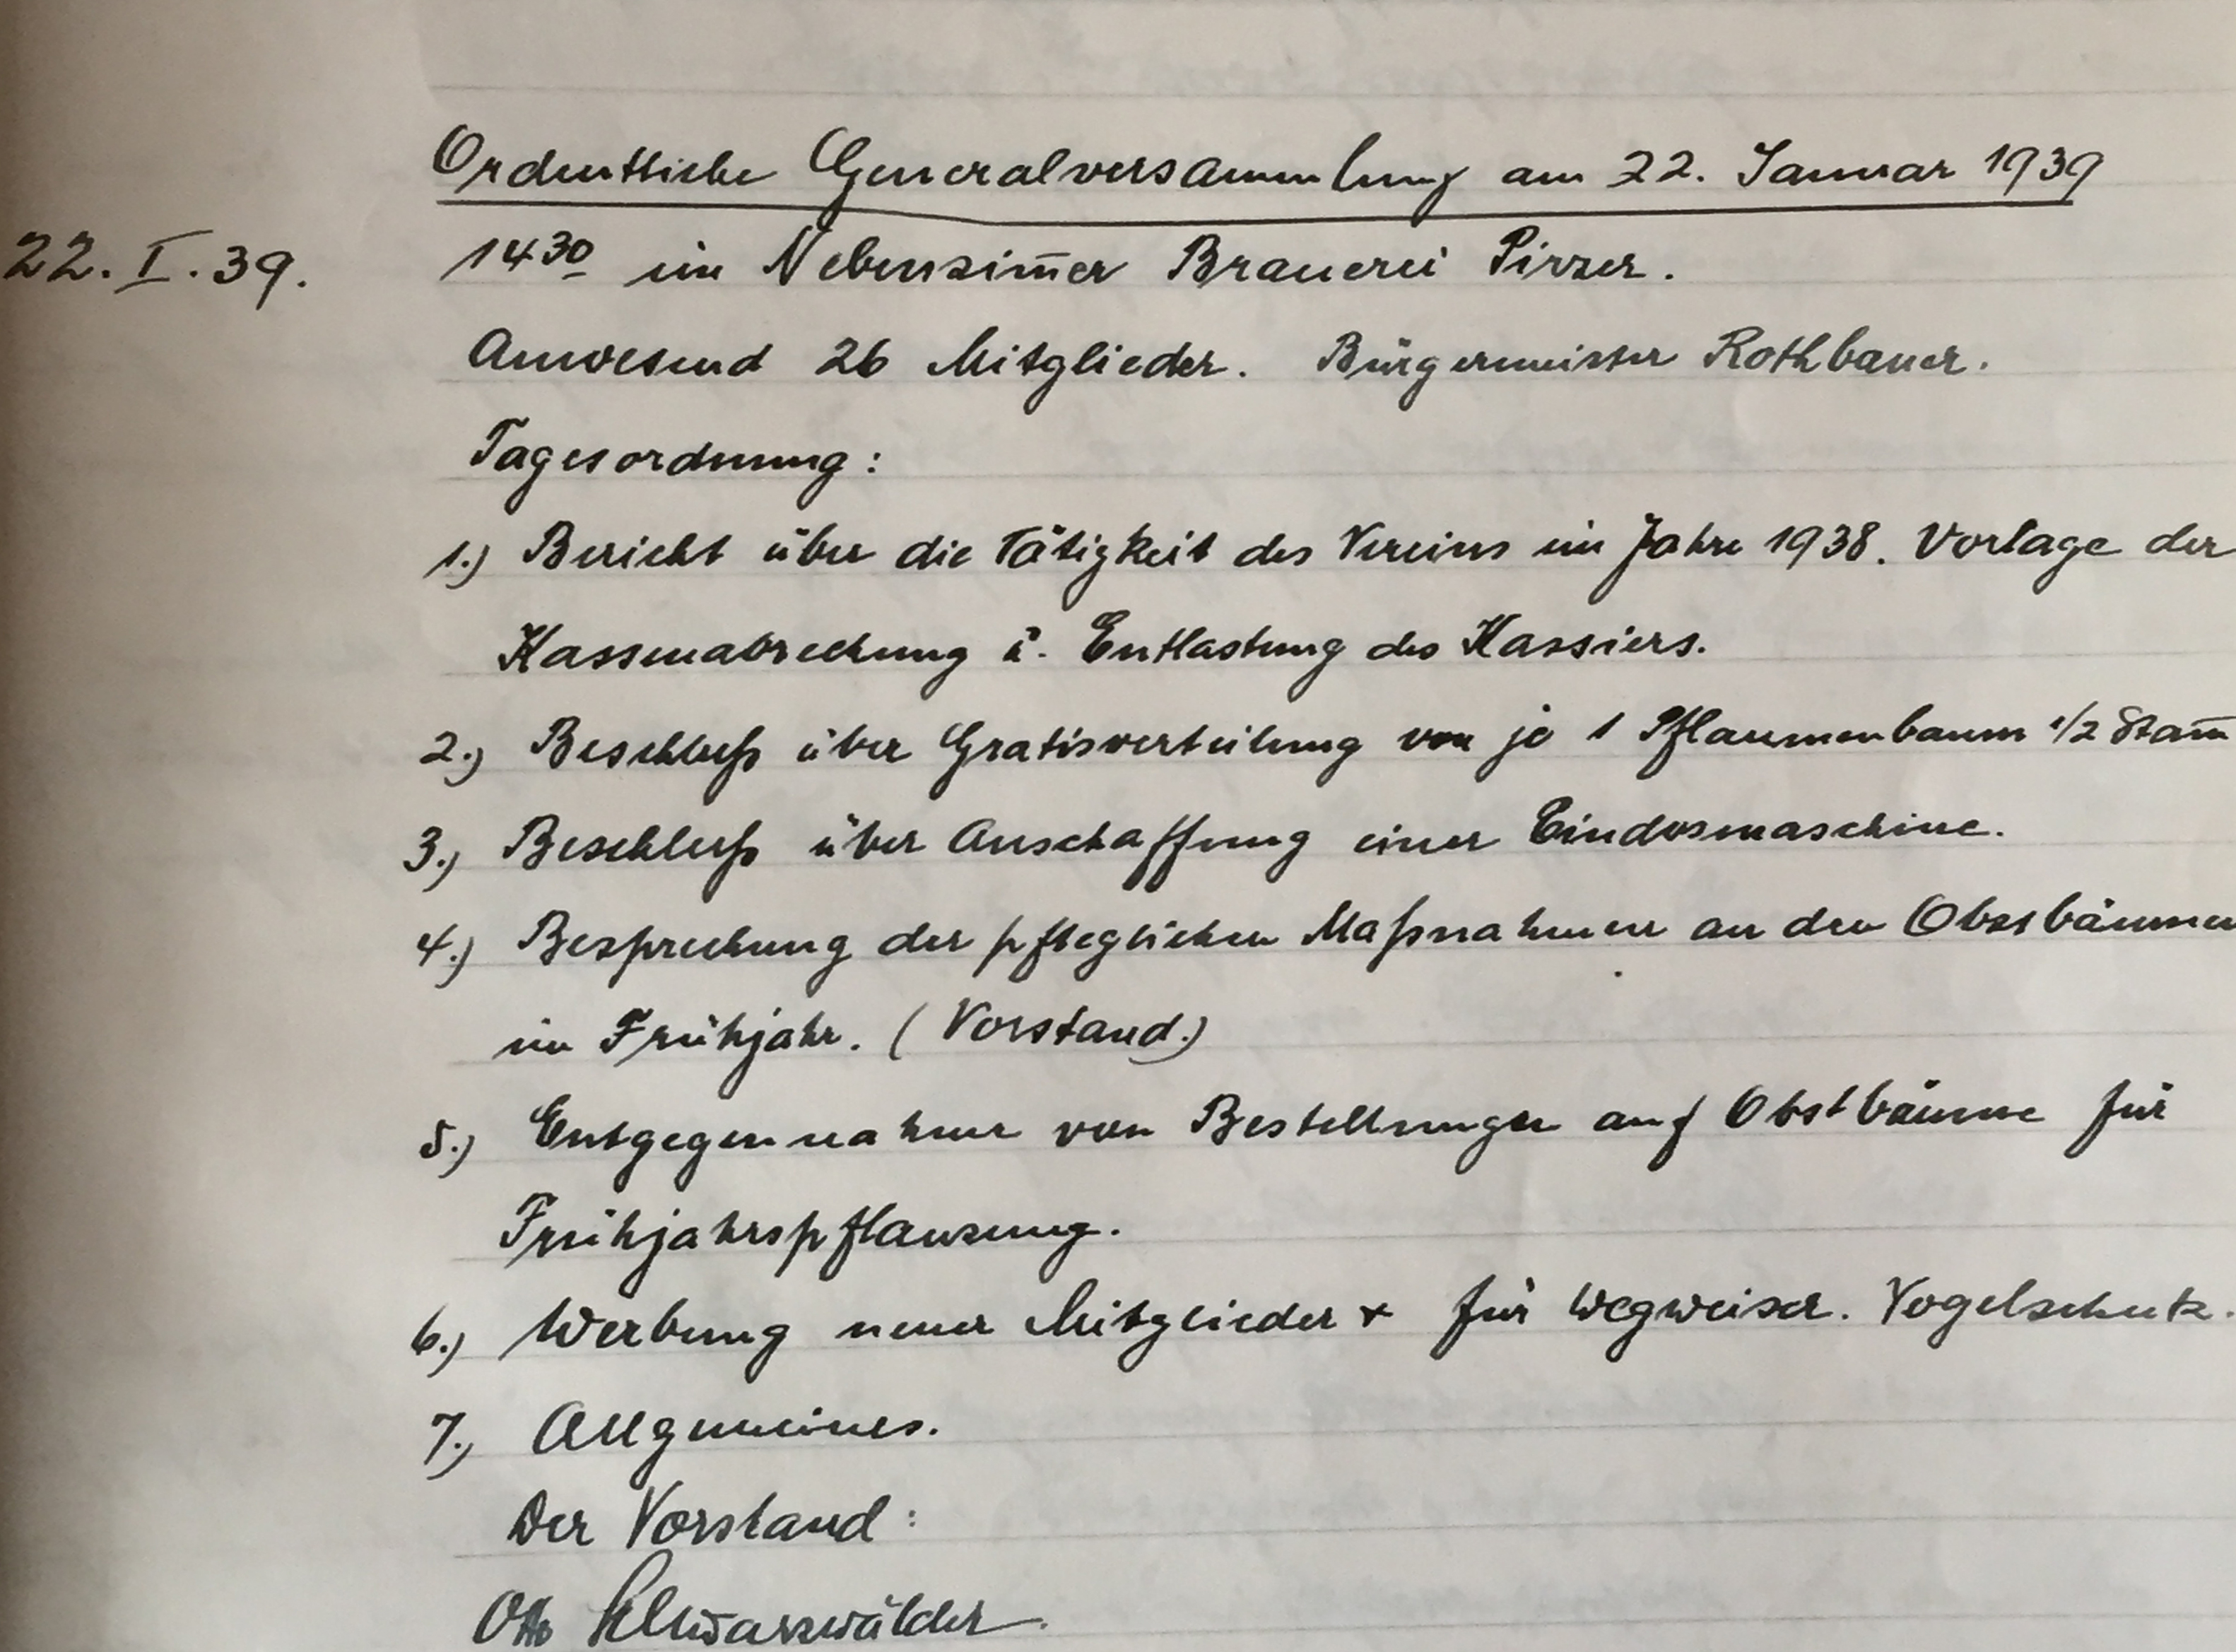 Ordentliche Generalversammlung am 22. Januar 1939
22. I. 39.
14 30 im Nebenzim̄er Brauerei Pirzer.
Anwesend 26 Mitglieder. Bürgermeister Rothbauer.
Tagesordnung:
1.) Bericht über die Tätigkeit des Vereins im Jahre 1938. Vorlage der
Kassenabrechnung u. Entlastung des Kassiers.
2.) Beschluß über Gratisverteilung von je 1 Pflaumenbaum 1/2 Stam̄
3.) Beschluß über Anschaffung einer Eindosmaschine.
4.) Besprechung der pfleglichen Maßnahmen an den Obstbäumen
im Frühjahr. (Vorstand.)
5.) Entgegennahme von Bestellungen auf Obstbäume für
Frühjahrspflanzung.
6.) Werbung neuer Mitglieder + für Wegweiser. Vogelschutz.
7.) Allgemeines.
Der Vorstand:
Otto Schwarzwälder.